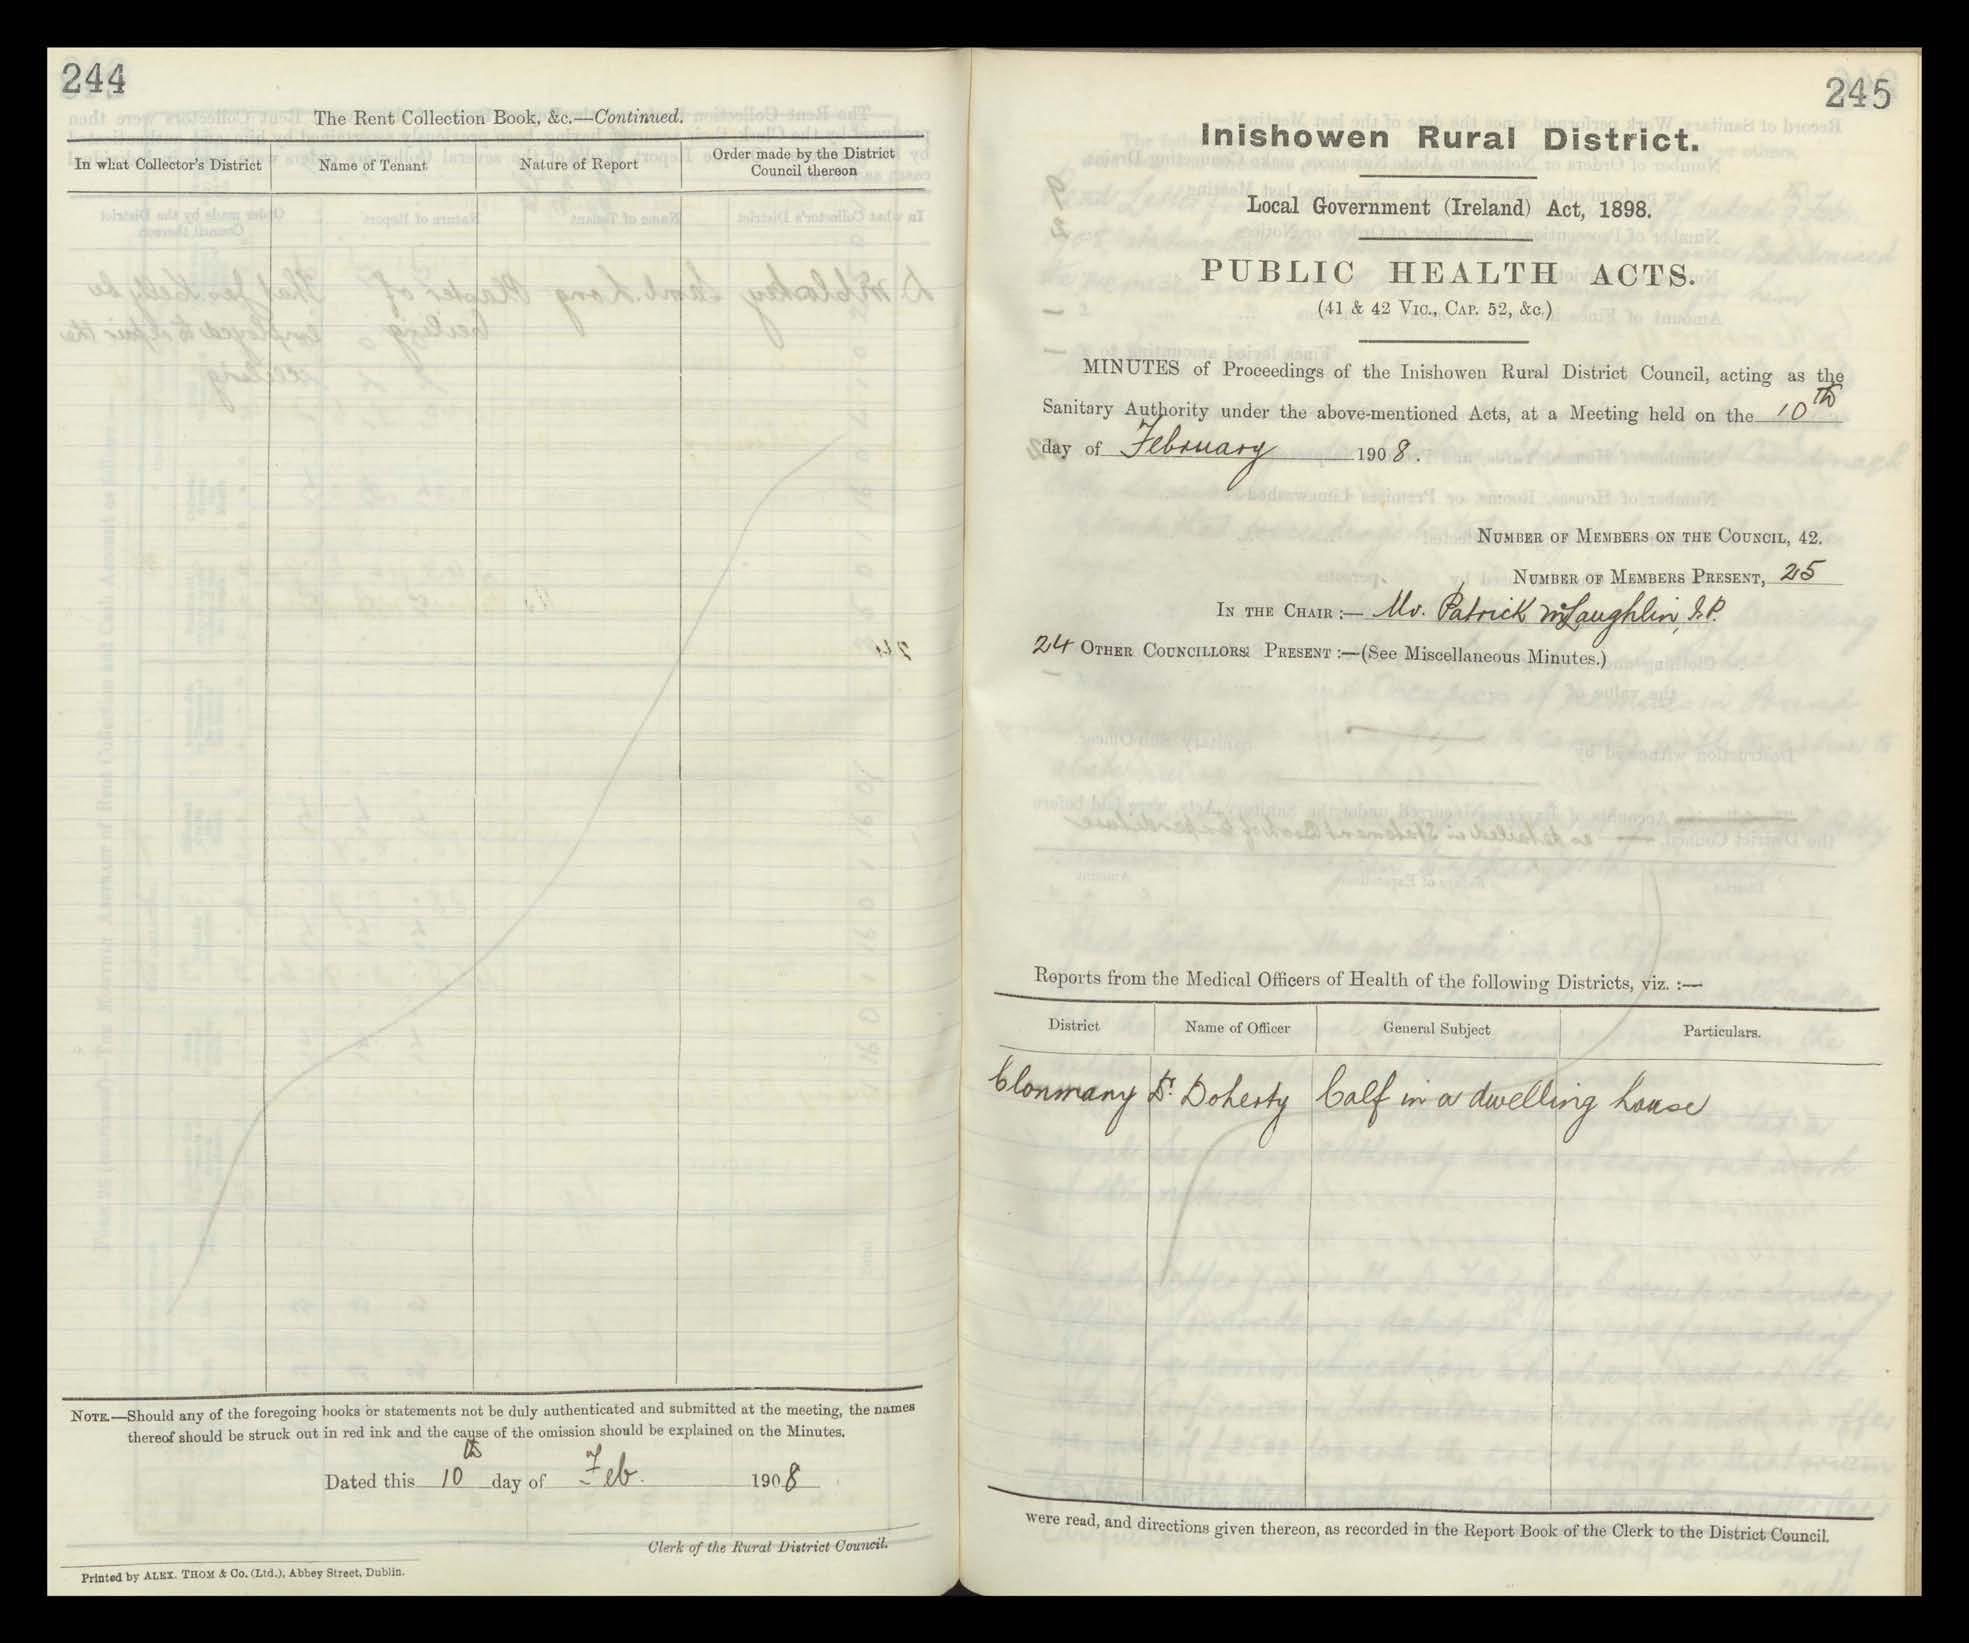 244
The Rent Collection Book, &c.—Continued.
In what Collector's District
Name of Tenant
Nature of Report
Order made by the District
Council thereon
NOTE.—Should any of the foregoing books or statements not be duly authenticated and submitted at the meeting, the names
thereof should be struck out in red ink and the cause of the omission should be explained on the Minutes.
Dated this 10th day of Feb. 1908
Clerk of the Rural District Council.
Printed by ALEX. THOM & Co. (Ltd.), Abbey Street, Dublin.
245
Inishowen Rural District.
Local Government (Ireland) Act, 1898.
PUBLIC HEALTH ACTS.
(41 & 42 VIC., CAP. 52, &c.)
MINUTES of Proceedings of the Inishowen Rural District Council, acting as the
Sanitary Authority under the above-mentioned Acts, at a Meeting held on the 10th
day of February 1908.
NUMBER OF MEMBERS ON THE COUNCIL, 42.
NUMBER OF MEMBERS PRESENT, 25
IN THE CHAIR :— Mr. Patrick McLaughlin, J.P.
24 OTHER COUNCILLORS PRESENT :—(See Miscellaneous Minutes.)
Reports from the Medical Officers of Health of the following Districts, viz. :—
District
Name of Officer
General Subject
Particulars.
Clonmany Dr. Doherty Calf in a dwelling house
were read, and directions given thereon, as recorded in the Report Book of the Clerk to the District Council.